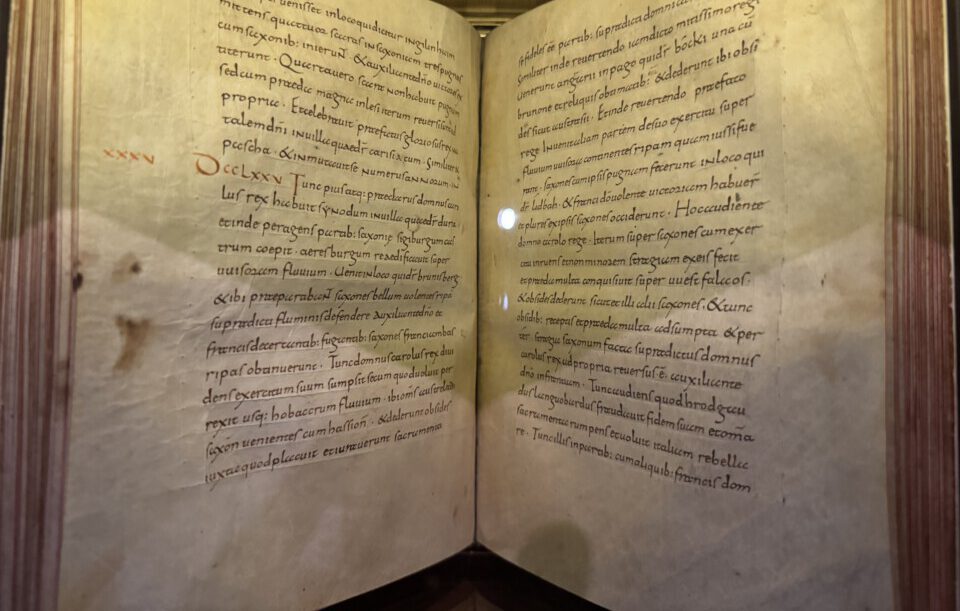 uenisset inloco quidicitur ingilinhaim
mittens quattuor scaras insaxoniam tres pugnas
cum saxonib: inierunt & auxiliante dño uictores ex
titerunt · Quarta uero scara non habuit pugnam
sedcum praeda magna inlesi iterum reuersi sunt
propria · Et celebrauit praefatus gloriosus rex na
talem dñi inuilla quae dr carisiacum · Similiter
pascha · & inmutauit se numerus annorum in
xxxv DCCLXXV Tunc pius atq: praeclarus domnus caro
lus rex habuit synodum inuilla quae dr duria
etinde peragens partib: saxoniae sigiburgum cas
trum coepit · aeresburgum reaedificauit super
uuisoram fluuium · Uenit inloco qui dr brunisberg
& ibi praeparabant saxones bellum uolentes ripa
supradicta fluminis defendere Auxiliante dño et
francis decertantib: fugierunt saxones franci ambas
ripas obtinuerunt · Tunc domnus carolus rex diui
dens exercitum suum sumpsit secum quos uoluit per
rexit usq: hobaccrum fluuium · ibi omnes austreleudi
saxon uenientes cum hassion · & dederunt obsides
iuxta quod placuit et iurauerunt sacramenta
se fideles eē partib: supradicti domni caroli
Similiter inde reuertendo iamdicto mitissimo regi
Uenerunt angrarii in pago qui dr bocki una cū
brunone etreliquis obtimatib: & dederunt ibi obsi
des sicut austrasii · Et inde reuertendo praefato
rege Inueni aliam partem de suo exercitu super
fluuium uuisora continentes ripam quam iussi fue
rant · saxones cum ipsis pugnam fecerunt inloco qui
dr lidbah · & franci dō uolente uictoriam habuer
et plures ex ipsis saxones occiderunt · Hoc audiente
domno carolo rege · Iterum super saxones cum exer
citu inruens et non minorem stragium ex eis fecit
et praeda multa conquisiuit super uuestfalaos ·
& obsides dederunt sicut et illi alii saxones · & tunc
obsidib: receptis et praeda multa adsumpta & per
ter stragia saxonum factas supradictus domnus
carolus rex ad propria reuersus ē · auxiliante
dño in franciam · Tunc audiens quod hrodgau
dus langobardus fraudauit fidem suam et omnia
sacramenta rumpens et uoluit italiam rebella
re · Tunc illis in partib: cum aliquib: francis dom